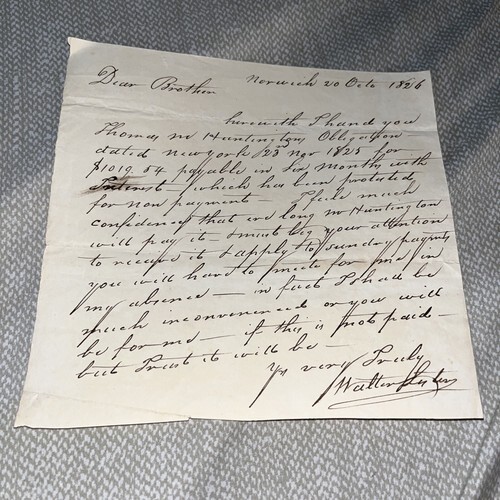 Norwich 20 Octo 1826
Dear Brother
herewith I hand you
Thomas M Huntingtons Obligation
dated New York 23d Nov 1825 for
$1019.54 payable in Six Months with
Interest — which has been protested
for non payment — I feele much
confidence that ere long Mr Huntington
will pay it — I must beg your attention
to receive it & apply to sundry payments
you will have to meete for me in
my absence — in fact I shall be
much inconvenienced or you will
be for me — if this is not paid —
but Trust it will be —
Yrs very Truly
Walter